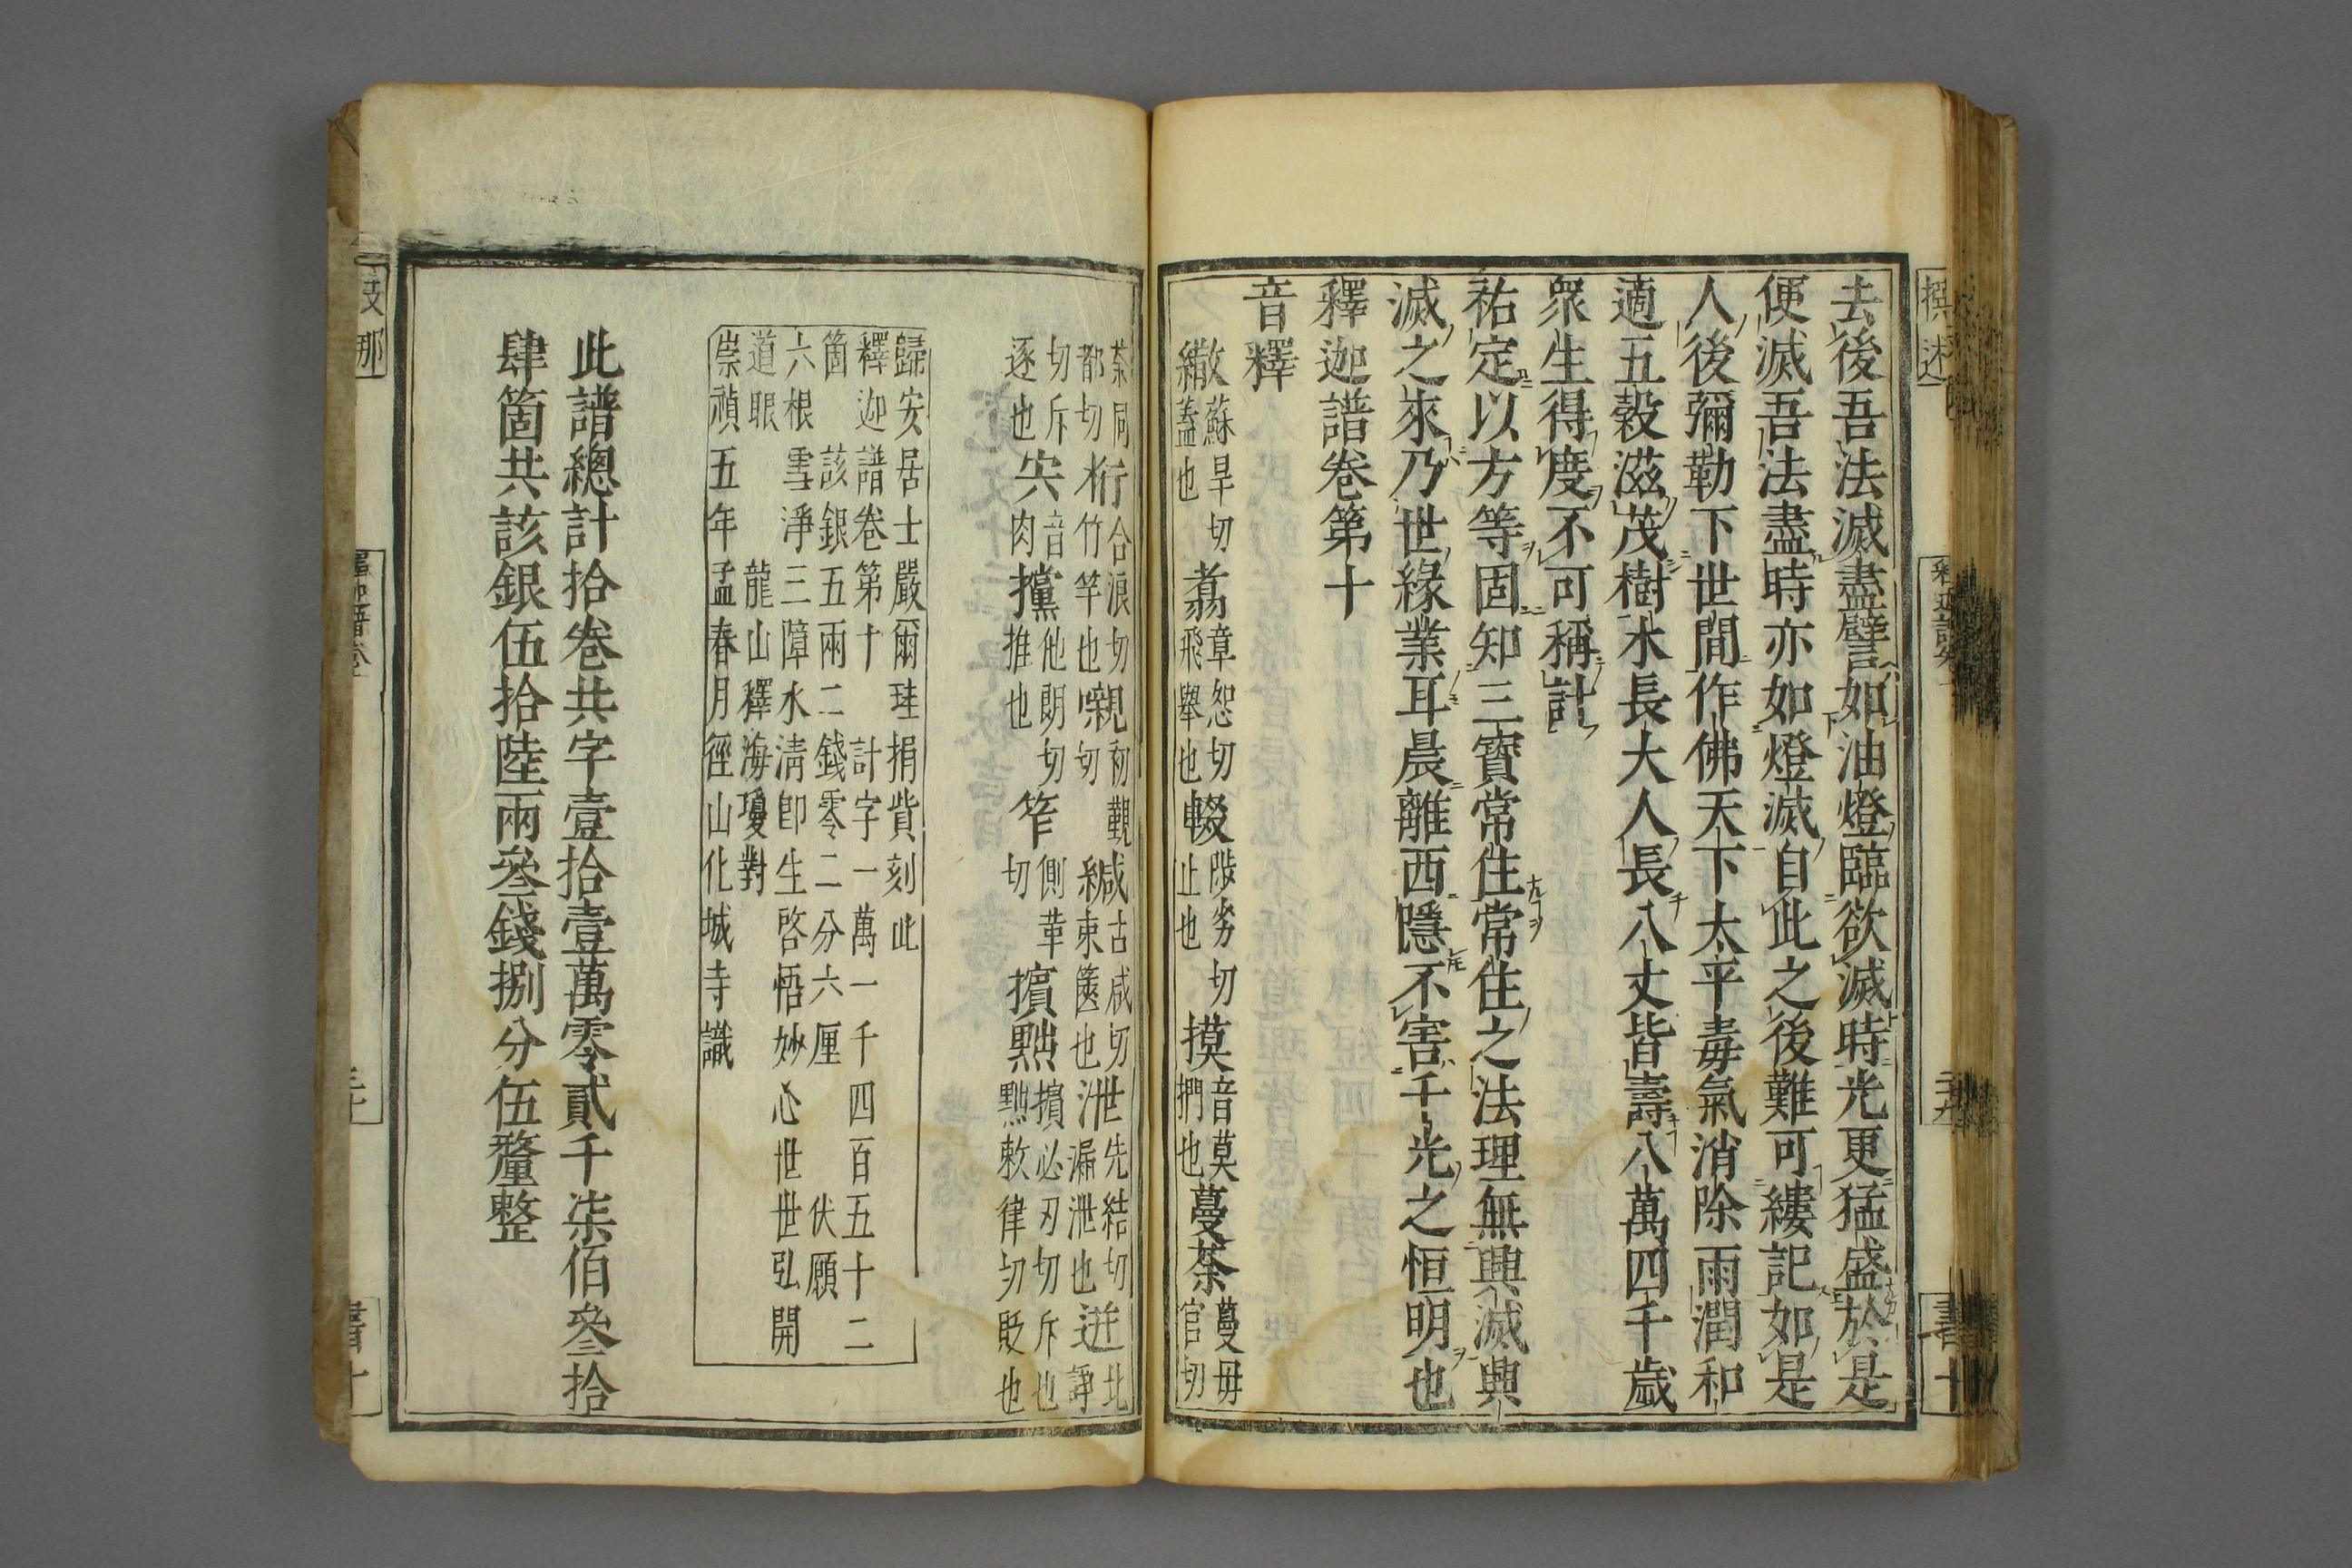 撰述
釋迦譜卷十
二十九
書十
去後吾法滅盡譬如油燈臨欲滅時光更猛盛於是
便滅吾法盡時亦如燈滅自此之後難可縷記如是
人後彌勒下世間作佛天下太平毒氣消除雨潤和
適五穀滋茂樹木長大人長八丈皆壽八萬四千歲
眾生得度不可稱計
祐定以方等固知三寶常住常住之法理無興滅興
滅之來乃世緣業耳晨離西隱不害千光之恒明也
釋迦譜卷第十
音釋
繖蘇旱切蓋也 翥章恕切飛舉也 輟陟劣切止也 摸音莫捫也 蔓荼蔓毋官切
荼同都切 桁合浪切竹竿也 嚫初覲切 緘古咸切束篋也 泄先結切漏泄也 迸北諍
切斥逐也 宍音肉 攩他朗切推也 笮側革切 擯黜擯必刃切斥也黜敕律切貶也
歸安居士嚴爾珪捐貲刻此
釋迦譜卷第十 計字一萬一千四百五十二
箇 該銀五兩二錢零二分六厘 伏願
六根雪淨三障水清卽生啓悟妙心世世弘開
道眼 龍山釋海瓊對
崇禎五年孟春月徑山化城寺識
此譜總計拾卷共字壹拾壹萬零貳千柒佰叄拾
肆箇共該銀伍拾陸兩叄錢捌分伍釐整
支那
書十